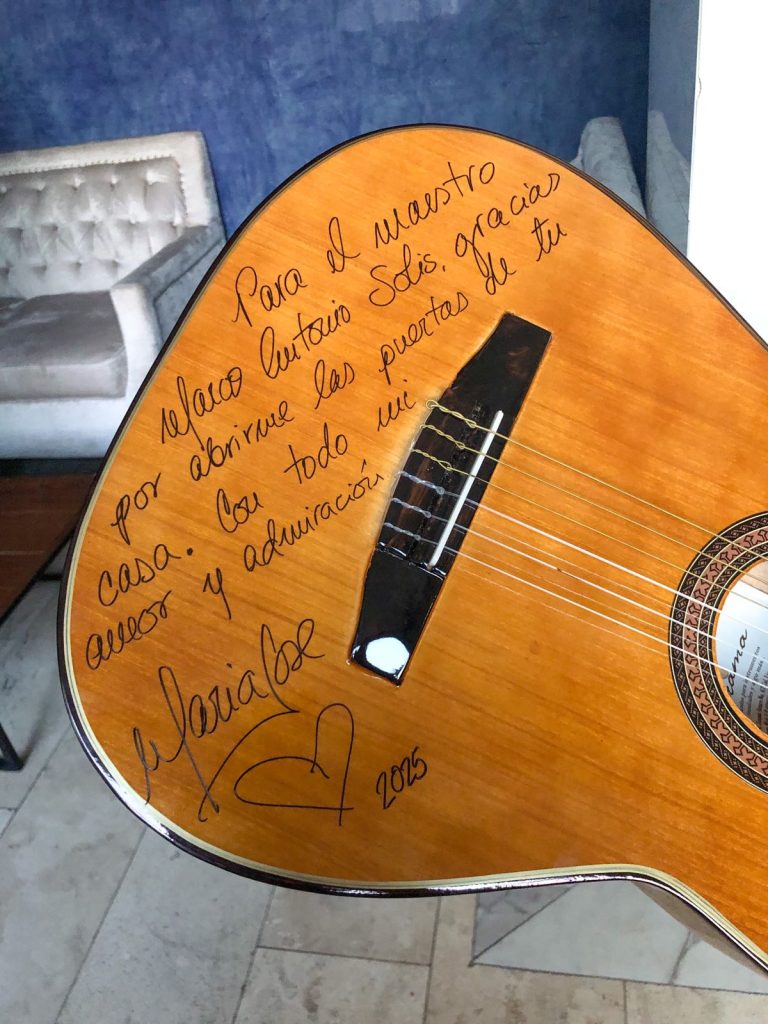 Para el maestro
Marco Antonio Solís, gracias
por abrirme las puertas de tu
casa. Con todo mi
amor y admiración
Maria José
2025